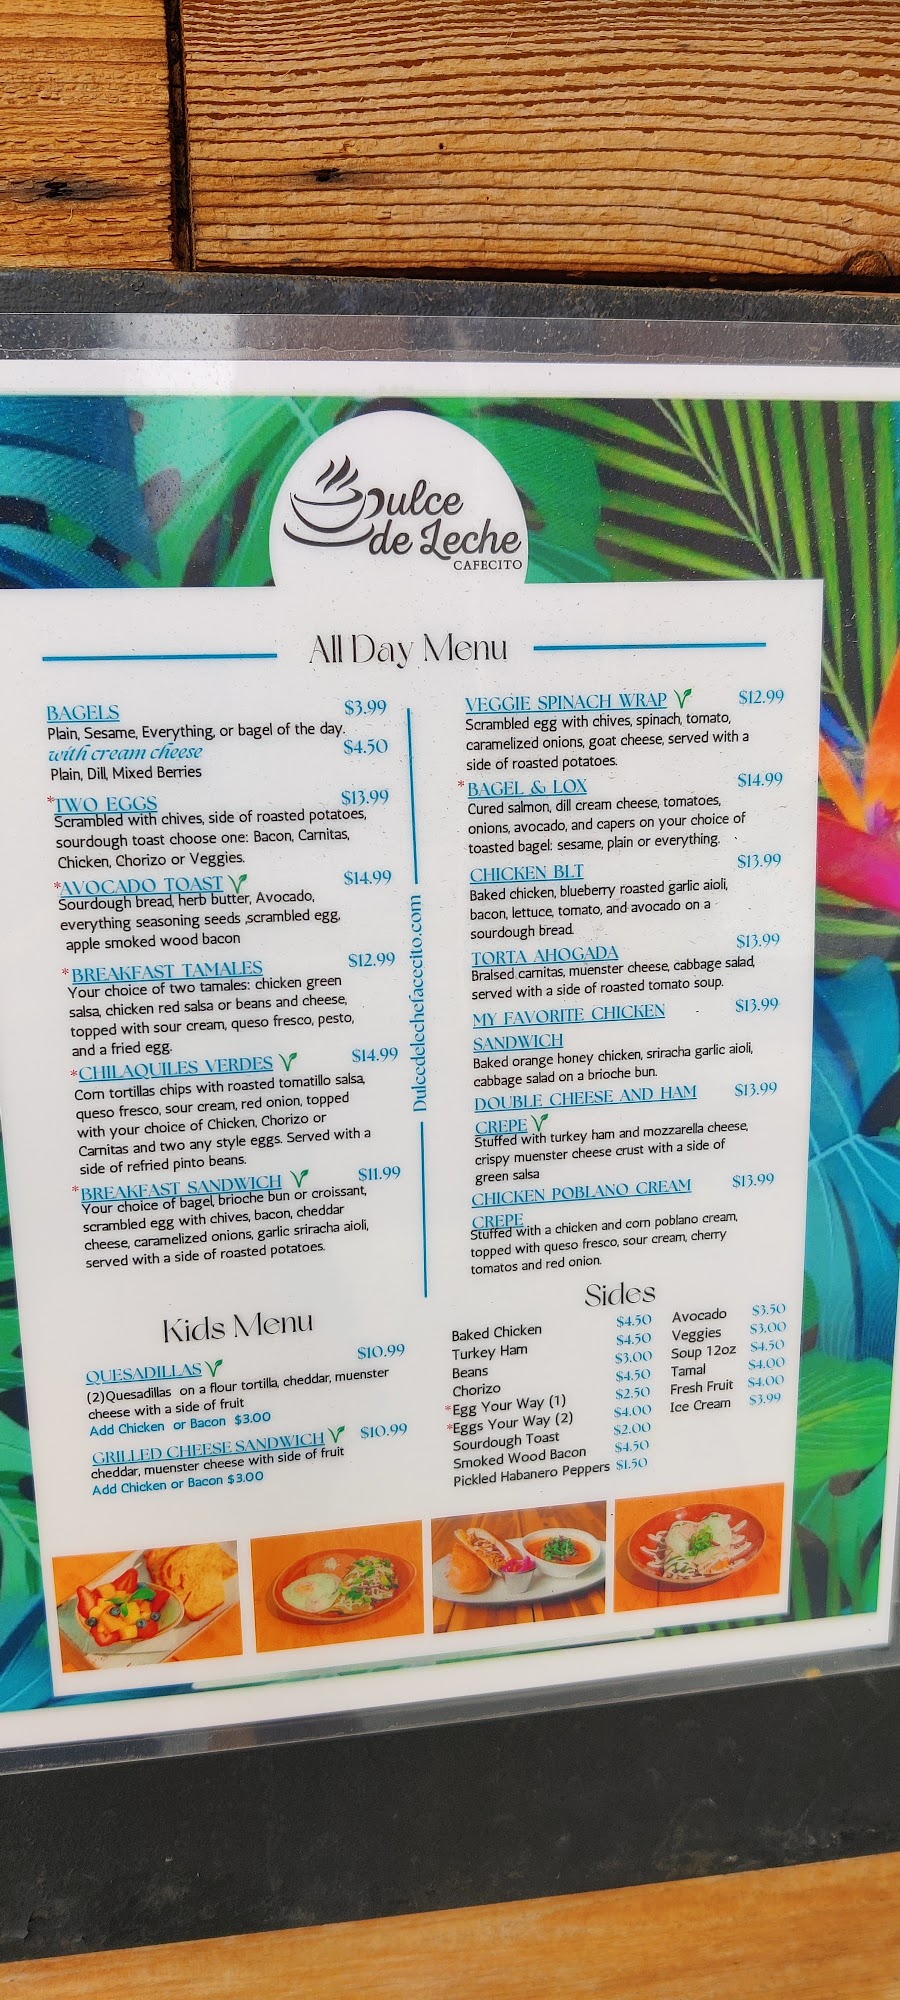 Dulce
de Leche
CAFECITO
All Day Menu
BAGELS $3.99
Plain, Sesame, Everything, or bagel of the day.
with cream cheese $4.50
Plain, Dill, Mixed Berries
*TWO EGGS $13.99
Scrambled with chives, side of roasted potatoes,
sourdough toast choose one: Bacon, Carnitas,
Chicken, Chorizo or Veggies.
*AVOCADO TOAST $14.99
Sourdough bread, herb butter, Avocado,
everything seasoning seeds ,scrambled egg,
apple smoked wood bacon
*BREAKFAST TAMALES $12.99
Your choice of two tamales: chicken green
salsa, chicken red salsa or beans and cheese,
topped with sour cream, queso fresco, pesto,
and a fried egg.
*CHILAQUILES VERDES $14.99
Corn tortillas chips with roasted tomatillo salsa,
queso fresco, sour cream, red onion, topped
with your choice of Chicken, Chorizo or
Carnitas and two any style eggs. Served with a
side of refried pinto beans.
*BREAKFAST SANDWICH $11.99
Your choice of bagel, brioche bun or croissant,
scrambled egg with chives, bacon, cheddar
cheese, caramelized onions, garlic sriracha aioli,
served with a side of roasted potatoes.
Kids Menu
QUESADILLAS $10.99
(2)Quesadillas on a flour tortilla, cheddar, muenster
cheese with a side of fruit
Add Chicken or Bacon $3.00
GRILLED CHEESE SANDWICH $10.99
cheddar, muenster cheese with side of fruit
Add Chicken or Bacon $3.00
Dulcedelechefacecito.com
VEGGIE SPINACH WRAP $12.99
Scrambled egg with chives, spinach, tomato,
caramelized onions, goat cheese, served with a
side of roasted potatoes.
*BAGEL & LOX $14.99
Cured salmon, dill cream cheese, tomatoes,
onions, avocado, and capers on your choice of
toasted bagel: sesame, plain or everything.
CHICKEN BLT $13.99
Baked chicken, blueberry roasted garlic aioli,
bacon, lettuce, tomato, and avocado on a
sourdough bread.
TORTA AHOGADA $13.99
Bralsed carnitas, muenster cheese, cabbage salad,
served with a side of roasted tomato soup.
MY FAVORITE CHICKEN $13.99
SANDWICH
Baked orange honey chicken, sriracha garlic aioli,
cabbage salad on a brioche bun.
DOUBLE CHEESE AND HAM $13.99
CREPE
Stuffed with turkey ham and mozzarella cheese,
crispy muenster cheese crust with a side of
green salsa
CHICKEN POBLANO CREAM $13.99
CREPE
Stuffed with a chicken and corn poblano cream,
topped with queso fresco, sour cream, cherry
tomatoes and red onion.
Sides
Baked Chicken $4.50
Turkey Ham $4.50
Beans $3.00
Chorizo $4.50
*Egg Your Way (1) $2.50
*Eggs Your Way (2) $4.00
Sourdough Toast $2.00
Smoked Wood Bacon $4.50
Pickled Habanero Peppers $1.50
Avocado $3.50
Veggies $3.00
Soup 12oz $4.50
Tamal $4.00
Fresh Fruit $4.00
Ice Cream $3.99